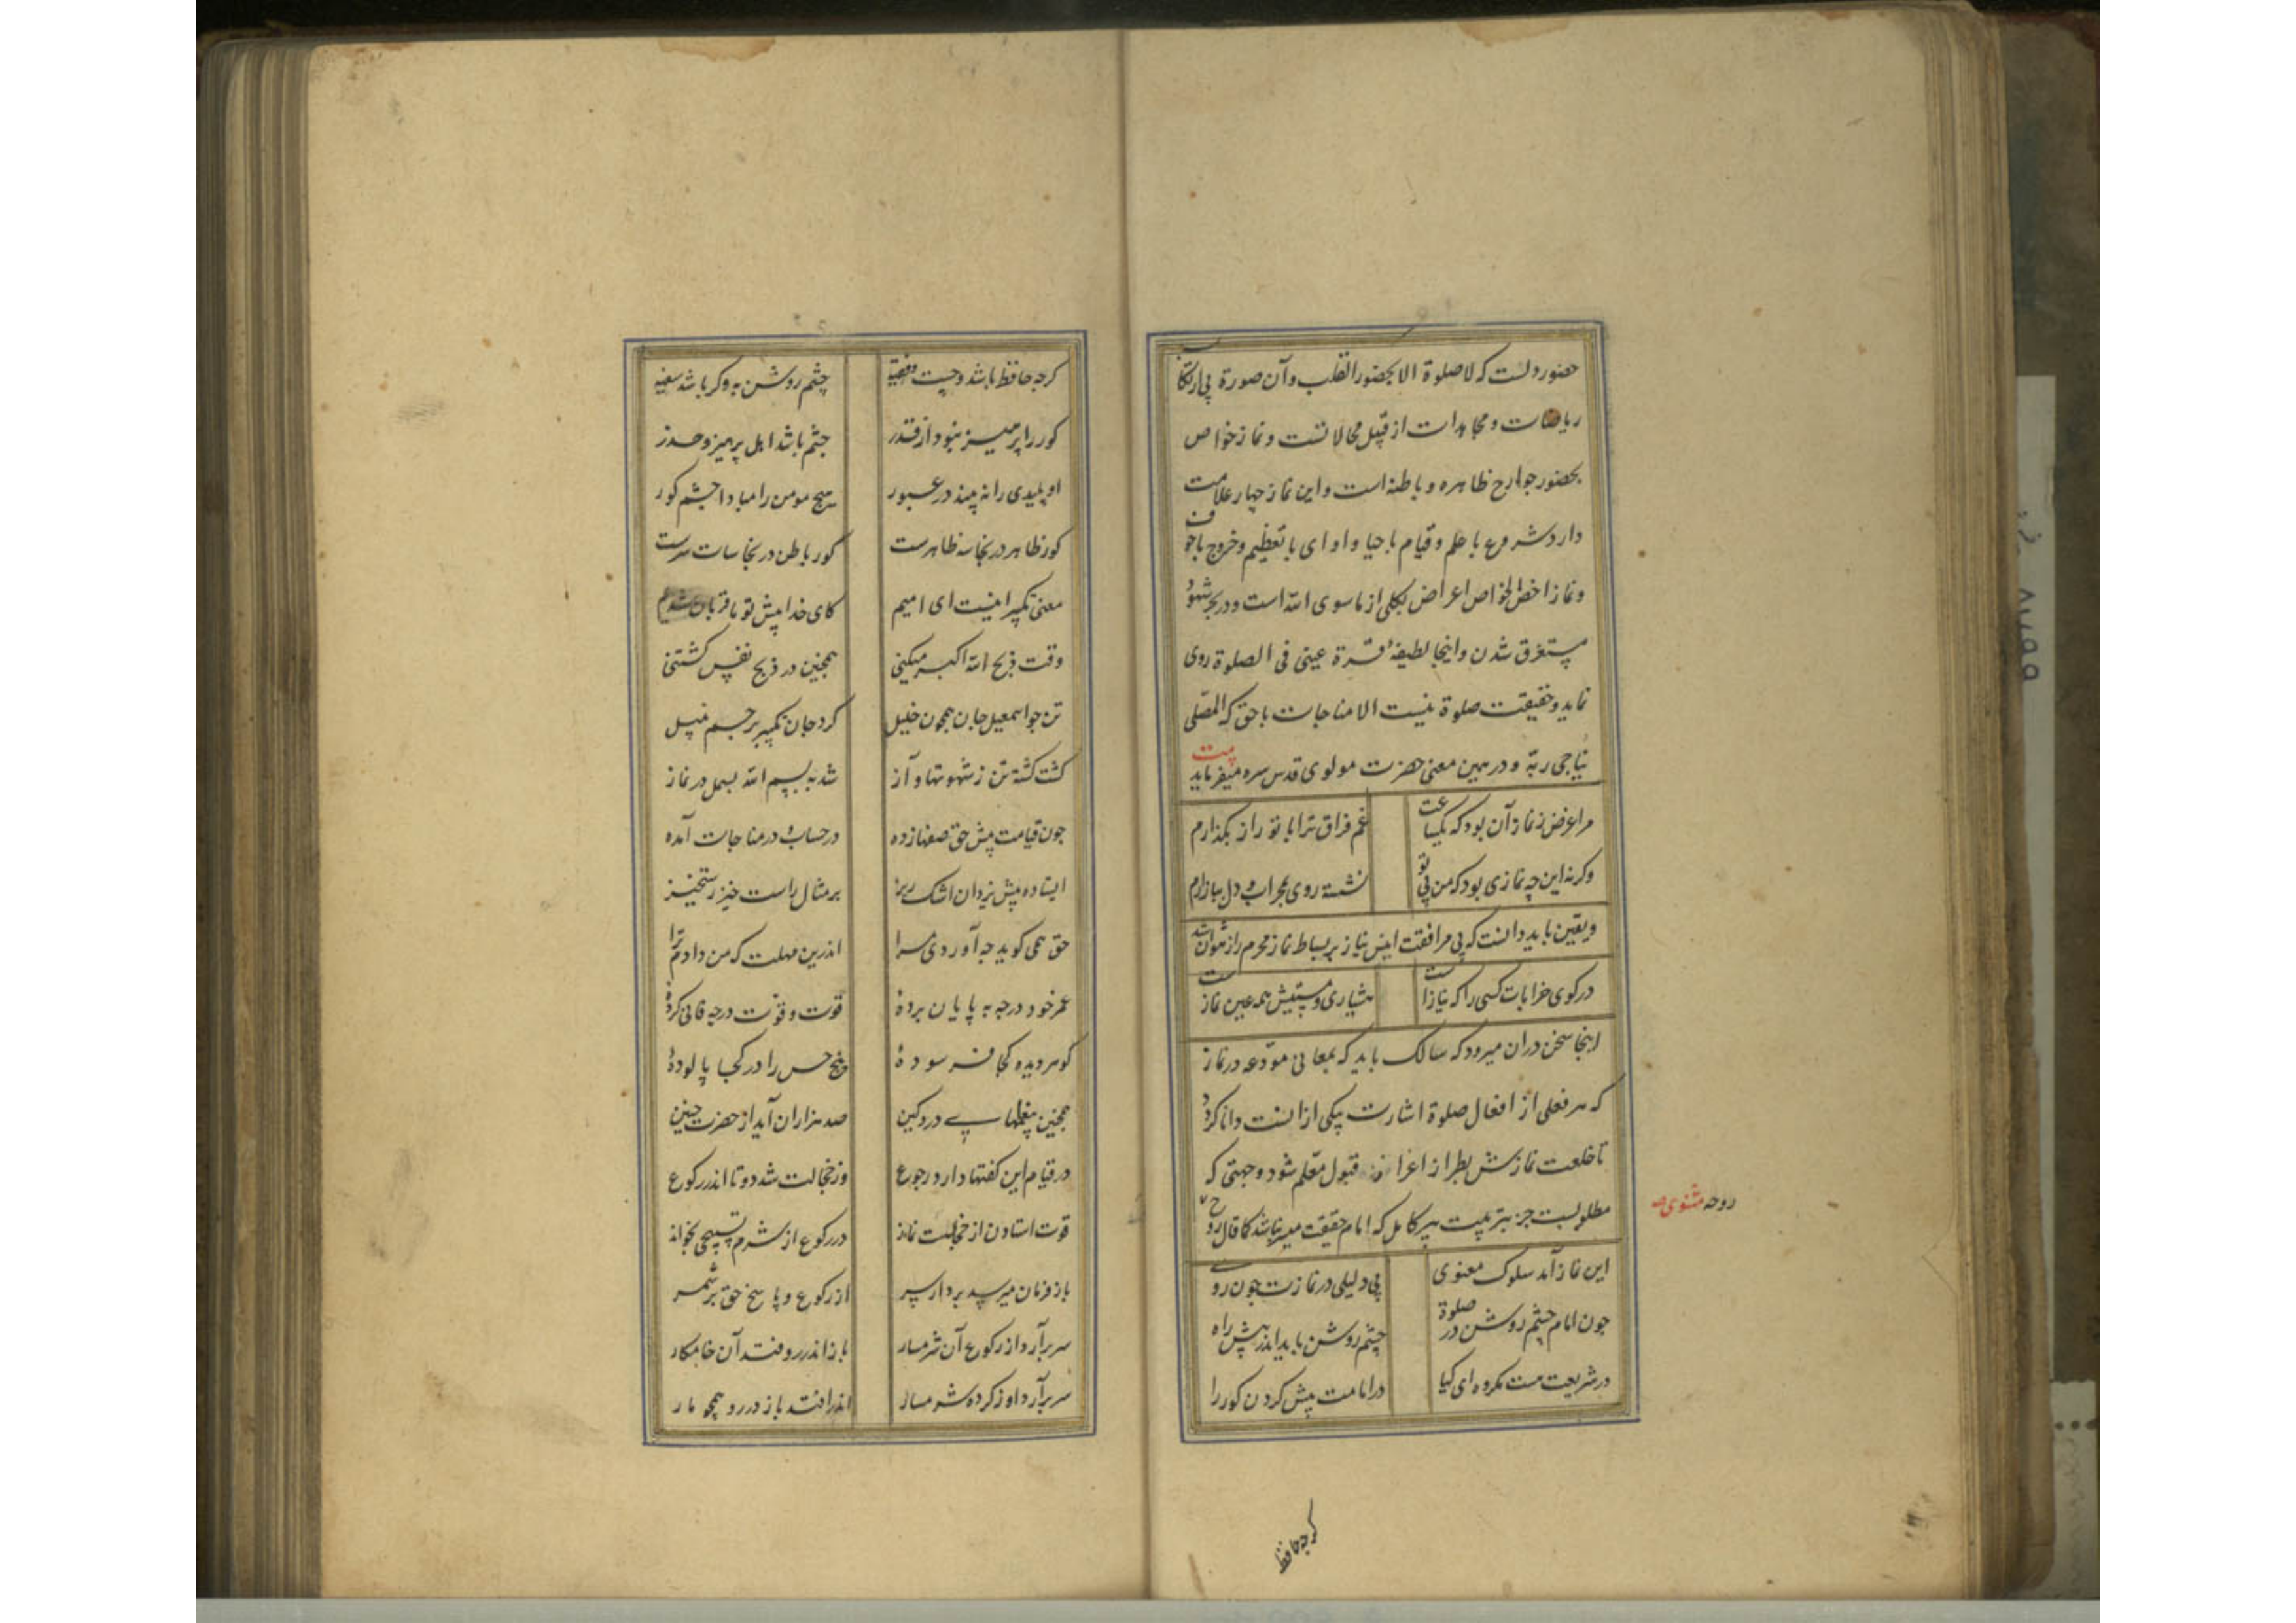 حضور دلست که لا صلوة الا بحضور القلب و آن صورة بی ارتکا
ریاضات و مجاهدات از قبیل محالاتست و نماز خواص
بحضور جوارح ظاهره و باطنه است و این نماز چهار علامت
دارد شروع با علم و قیام با حیا و ادای با تعظیم و خروج با خوف
و نماز اخص الخواص اعراض بکلی از ماسوی الله است و در بحر شهود
مستغرق شدن و اینجا لطیفهٔ قرة عینی فی الصلوة روی
نماید و حقیقت صلوة نیست الا مناجات با حق که المصلی
یناجی ربه و در همین معنی حضرت مولوی قدس سره میفرماید
بیت
مرا غرض ز نماز آن بود که یکساعت غم فراق ترا با تو راز بگذارم
وگرنه این چه نمازی بود که من بی تو نشسته روی بمحراب و دل ببازارم
و یقین باید دانست که بی مرافقت انیس نیاز بر بساط نماز محرم راز نتوان شد
بیت
در کوی خرابات کسی را که نیازست هشیاری و مستیش همه عین نمازست
اینجا سخن دران میرود که سالک باید که بمعانی مودعه در نماز
که هر فعلی از افعال صلوة اشارت بیکی ازانست دانا گردد
تا خلعت نمازش بطراز اعزاز قبول معلم شود و جهتی که
مطلوبست جز بتربیت پیر کامل که امام حقیقت میسر نباشد کما قال روح
روحه مثنوی
این نماز آمد سلوک معنوی بی دلیلی در نمازت چون روی
چون امام چشم روشن در صلوة چشم روشن باید اندر پیش راه
در شریعت هست مکروه ای کیا در امامت پیش کردن کور را
کرچه حافظ
کرچه حافظ باشد و چست و فقیه چشم روشن به وگر باشد سفیه
کور را پرهیز نبود از قذر چشم باشد اهل پرهیز و حذر
او پلیدی را نه بیند در عبور هیچ مومن را مبادا چشم کور
کور ظاهر در نجاسه ظاهرست کور باطن در نجاسات سرست
معنی تکبیر اینست ای امیم کای خدا پیش تو ما قربان شدیم
وقت ذبح الله اکبر میکنی همچنین در ذبح نفس کشتنی
تن چو اسمعیل جان همچون خلیل کرد جان تکبیر بر جسم نبیل
کشت کشته تن ز شهوتها و آز شد به بسم الله بسمل در نماز
چون قیامت پیش حق صفها زده در حساب و در مناجات آمده
ایستاده پیش یزدان اشک ریز بر مثال راست خیز رستخیز
حق همی کوید چه آوردی مرا اندرین مهلت که من دادم ترا
عمر خود در چه به پایان بردهٔ قوت و قوت در چه فانی کردهٔ
کوهر دیده کجا فرسودهٔ پنج حس را در کجا پالودهٔ
همچنین پیغامها پی دردکین صد هزاران آید از حضرت چنین
در قیام این کفتها دارد رجوع وز خجالت شد دو تا اندر رکوع
قوت استادن از خجلت نماند در رکوع از شرم تسبیحی بخواند
باز فرمان میرسد بردار سر از رکوع و پاسخ حق بر شمر
سر برآرد از رکوع آن شرمسار باز اندر رو فتد آن خامکار
سر برآرد او ز کرده شرمسار اندر افتد باز در رو همچو مار